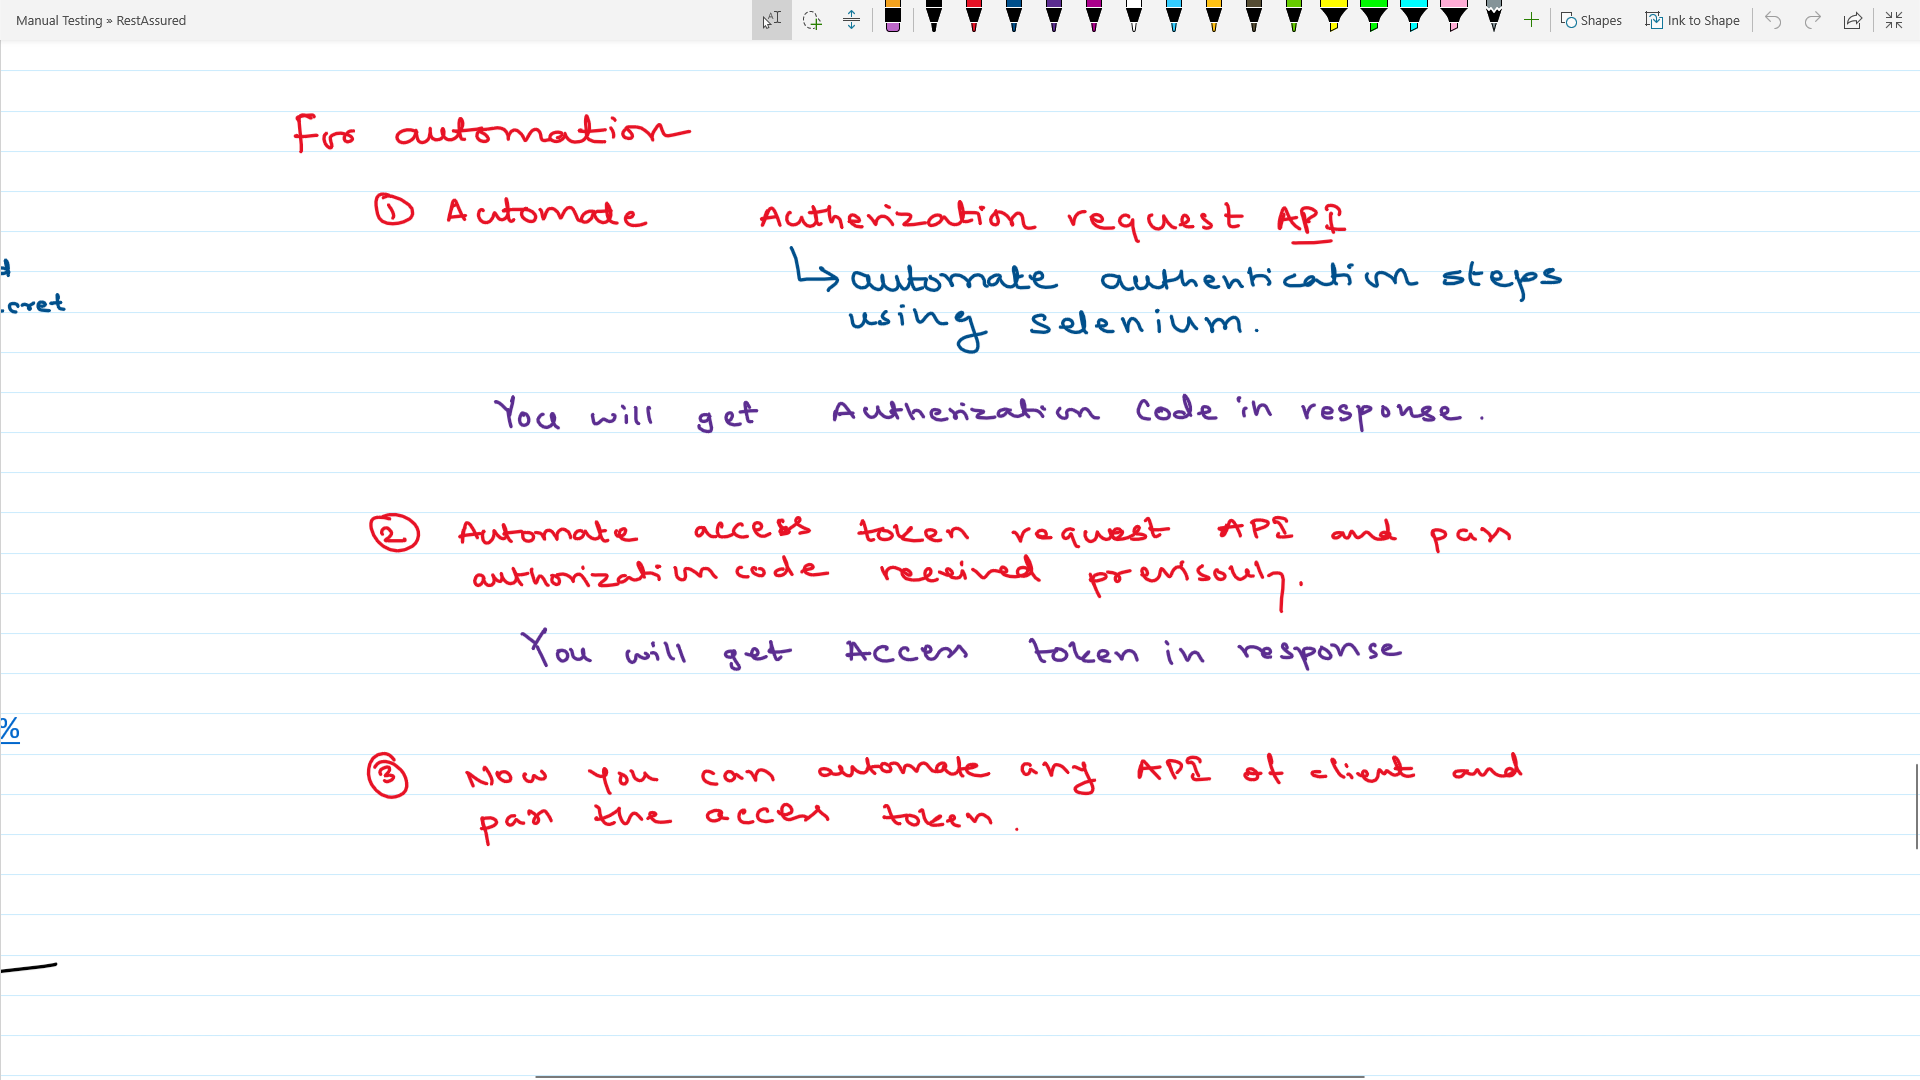 Manual Testing » RestAssured
Shapes
Ink to Shape
For automation
① Automate Autherization request API
cret
↳ automate authentication steps
using selenium.
You will get Autherization code in response.
② Automate access token request API and pass
authorization code received previsouly.
You will get Access token in response
%
③ Now you can automate any API of client and
pass the access token.